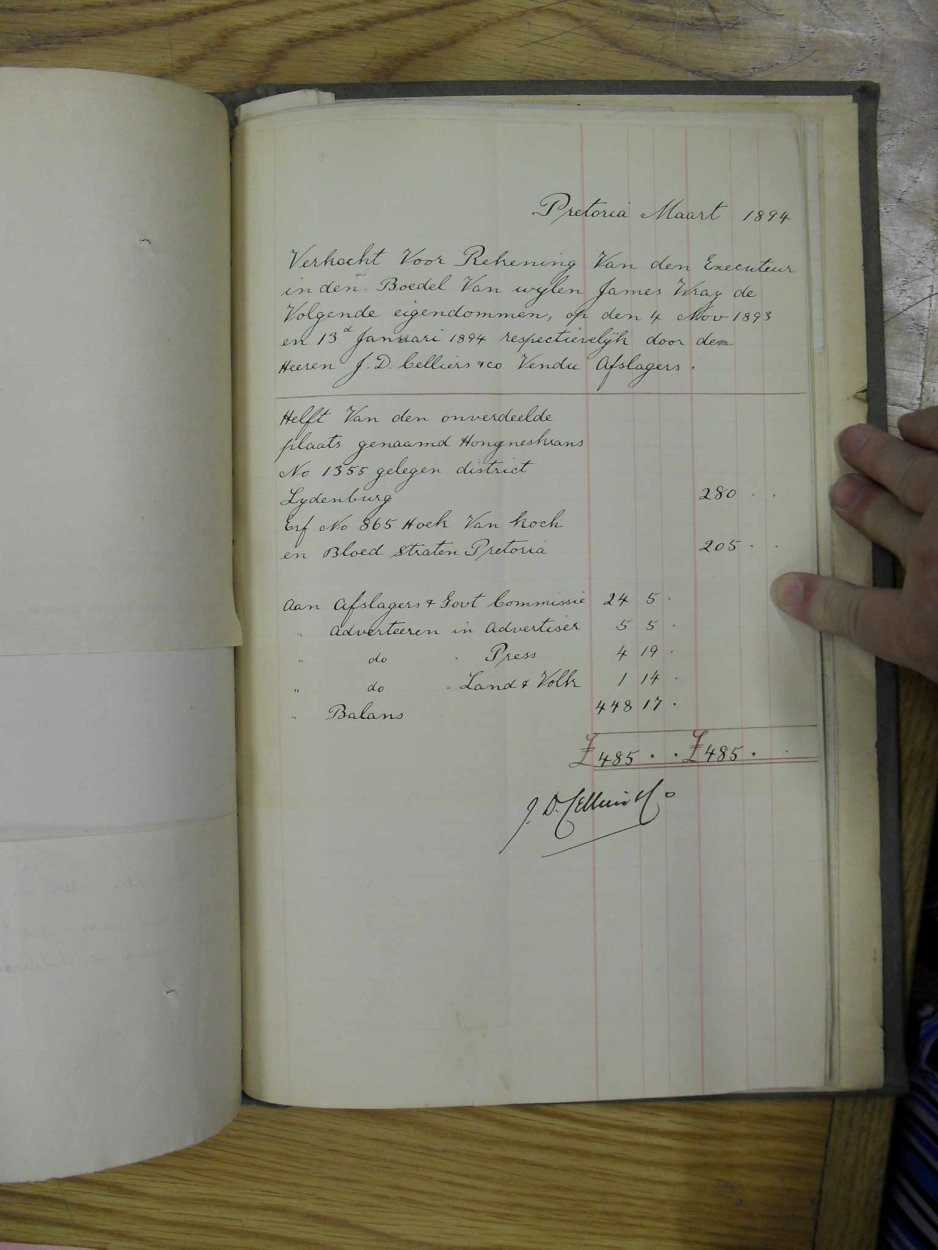 Pretoria Maart 1894
Verkocht Voor Rekening Van den Executeur
in den Boedel Van wylen James Wray de
Volgende eigendommen, op den 4 Nov 1893
en 13d Januari 1894 respectievelijk door den
Heeren J. D. Celliers & co Vendu Afslagers.
Helft Van den onverdeelde
plaats genaamd Hongneskrans
No 1355 gelegen district
Lydenburg 280 . .
Erf No 865 Hoek Van Koch
en Bloed Straten Pretoria 205 . .
Aan Afslagers & Govt Commissie 24 5 .
" Adverteeren in Advertiser 5 5 .
" do " Press 4 19 .
" do " Land & Volk 1 14 .
" Balans 448 17 .
£485 . . £485 . .
J. D. Celliers & Co